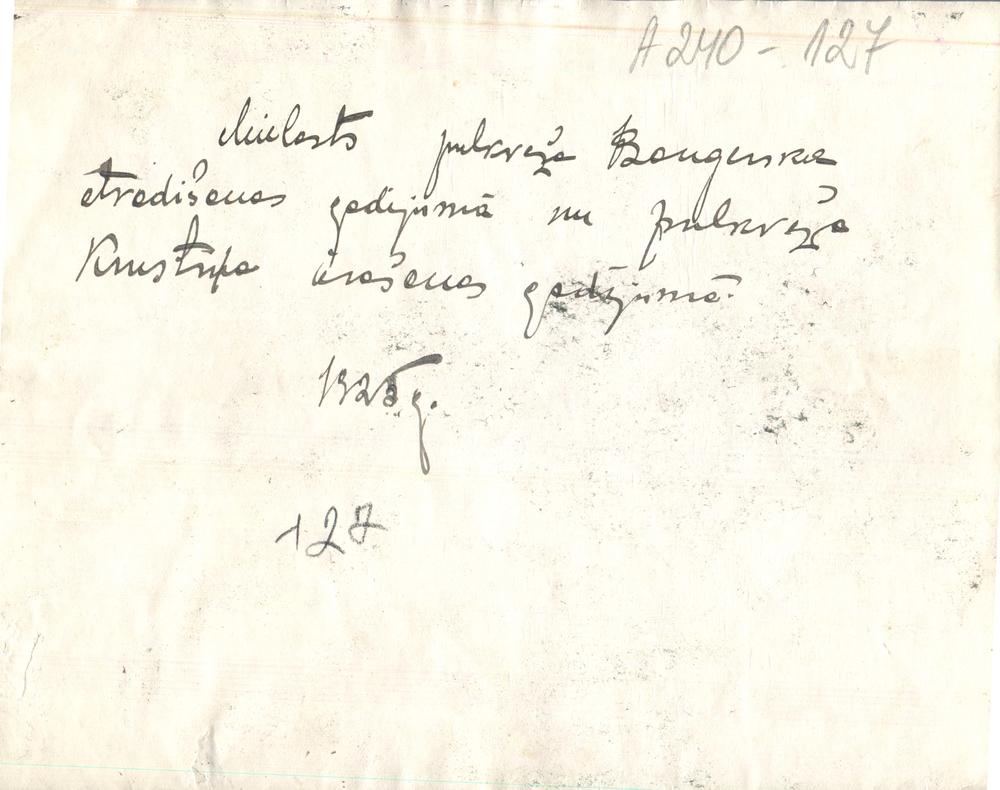 A 240 - 127
Mielasts pulkveža Bangerska
atvadīšanas gadijumā un pulkveža
Krustiņa gadijumā.
1925 g.
127